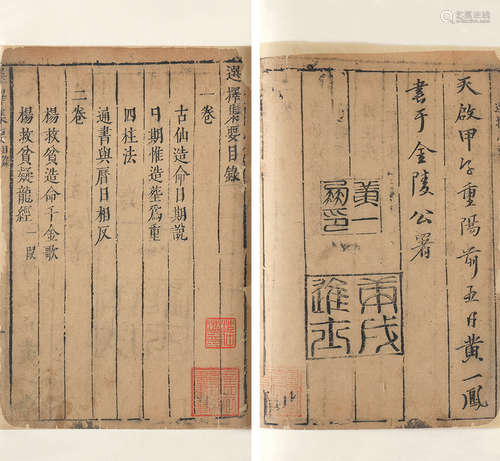 天啟甲子重陽前五日黃一鳳
書于金陵公署
黃一
鳳印
丙戌
進士
選擇集要目錄
一卷
古仙造命日期說
日期惟造塟為重
四柱法
通書與曆日相反
二卷
楊救貧造命千金歌
楊救貧疑龍經一段